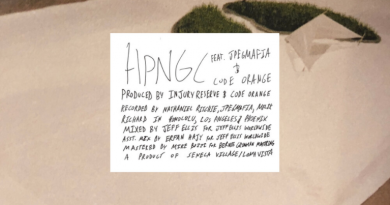 HPNGC FEAT. JPEGMAFIA
&
CODE ORANGE
PRODUCED BY INJURY RESERVE & CODE ORANGE
RECORDED BY NATHANIEL RITCHIE, JPEGMAFIA, MELIK
RICHARD IN HONOLULU, LOS ANGELES & PHOENIX
MIXED BY JEFF ELLIS FOR JEFF ELLIS WORLDWIDE
ASST. MIX BY ERFAN HAJI FOR JEFF ELLIS WORLDWIDE
MASTERED BY MIKE BOZZI FOR BERNIE GRUNDMAN MASTERING
A PRODUCT OF SENECA VILLAGE/LOMA VISTA